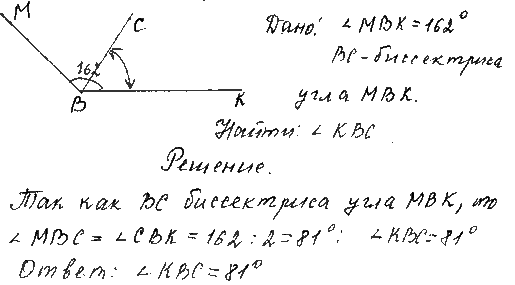 M
C
162
B
K
Дано: ∠ MBK = 162°
BC - биссектриса
угла MBK.
Найти: ∠ KBC
Решение.
Так как BC биссектриса угла MBK, то
∠ MBC = ∠ CBK = 162 : 2 = 81°: ∠ KBC = 81°
Ответ: ∠ KBC = 81°